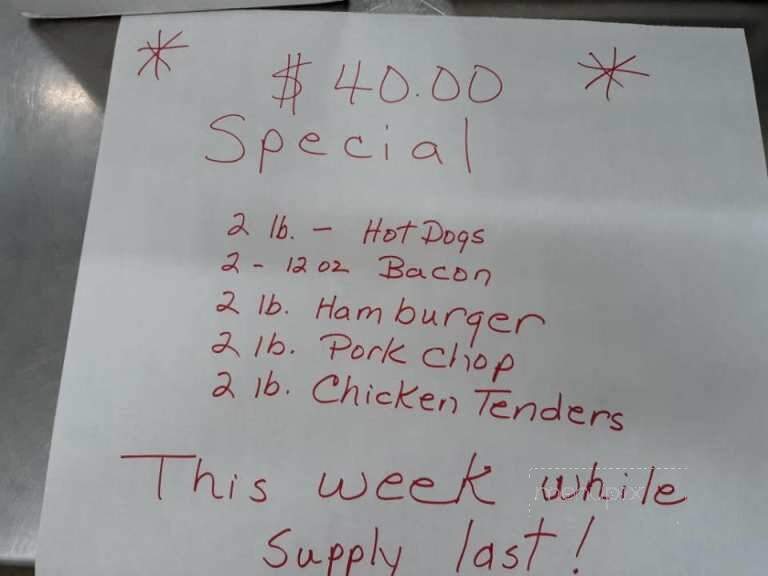 * $40.00 *
Special
2 lb. - Hot Dogs
2 - 12 oz Bacon
2 lb. Hamburger
2 lb. Pork Chop
2 lb. Chicken Tenders
This week while
supply last!
menupix